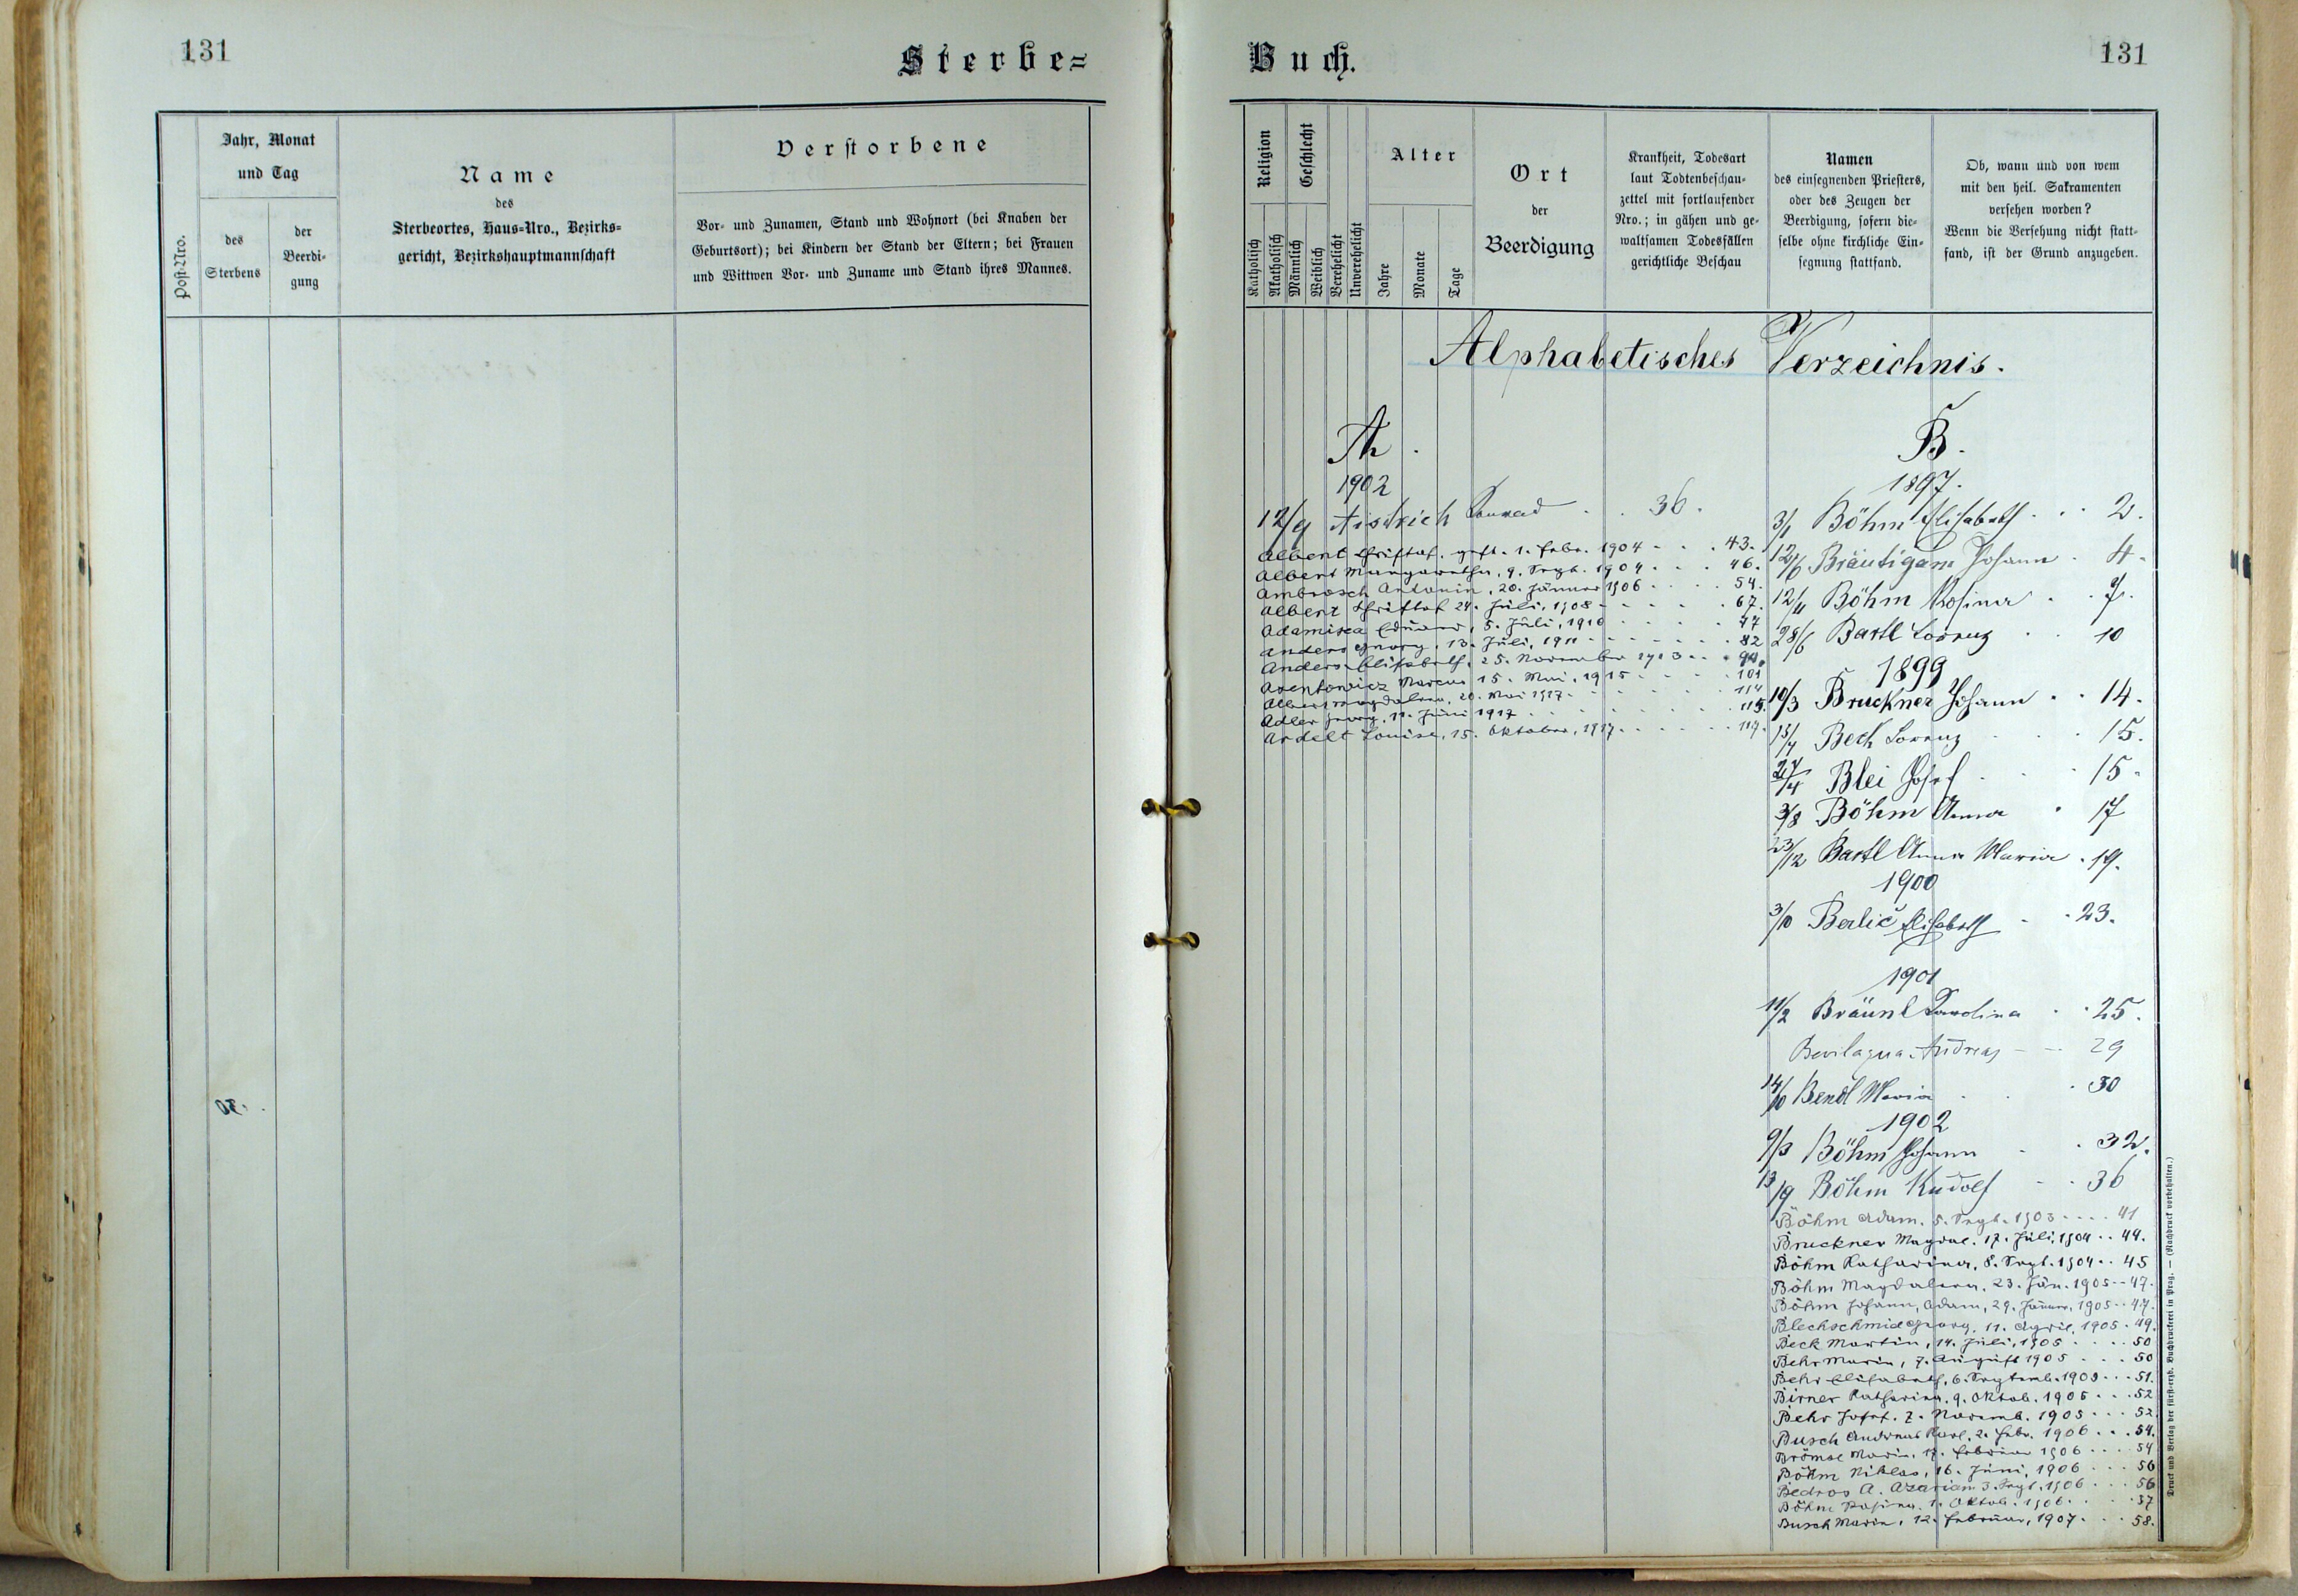 131
Sterbe=
Post-Nro.
Jahr, Monat
und Tag
des
Sterbens
der
Beerdi-
gung
Name
des
Sterbeortes, Haus=Nro., Bezirks=
gericht, Bezirkshauptmannschaft
Verstorbene
Vor- und Zunamen, Stand und Wohnort (bei Knaben der
Geburtsort); bei Kindern der Stand der Eltern; bei Frauen
und Wittwen Vor- und Zuname und Stand ihres Mannes.
Buch.
131
Religion
Katholisch
Akatholisch
Geschlecht
Männlich
Weiblich
Verehelicht
Unverehelicht
Alter
Jahre
Monate
Tage
Ort
der
Beerdigung
Krankheit, Todesart
laut Todtenbeschau-
zettel mit fortlaufender
Nro.; in gähen und ge-
waltsamen Todesfällen
gerichtliche Beschau
Namen
des einsegnenden Priesters,
oder des Zeugen der
Beerdigung, sofern die-
selbe ohne kirchliche Ein-
segnung stattfand.
Ob, wann und von wem
mit den heil. Sakramenten
versehen worden?
Wenn die Versehung nicht statt-
fand, ist der Grund anzugeben.
Alphabetisches Verzeichnis.
A.
1902
12/9 Konrad . . 36.
Albert Christof, gest. 1. Febr. 1904 - . . 43.
Albert Margaretha, 9. Sept. 1904 . . . 46.
Ambrosch Antonin, 20. Jänner 1906 . . . 54.
Albert Christof 24. Juli, 1908 - - - . 67.
Adamiska Eduard, 5. Juli, 1910 . . . . 77
Anders Georg, 13. Juli, 1911 - - - - . . 82
Anders Elisabeth, 25. November 1913 . .
Axentowicz Marcus 15. Mai, 1915 . . . . 101
Magdalena, 20. Mai 1917 . . . . 114
Adler Georg, 11. Juni 1917 . . . . 115.
Ardelt Louise, 15. Oktober, 1917 . . . . 117.
B.
1897.
3/1 Böhm Elisabeth . . . 2.
12/6 Bräutigam Johann . 4.
12/4 Böhm Rosina . . 7.
28/6 Bartl Lorenz . . 10
1899
10/3 Bruckner Johann . . 14.
15/4 Bech Lorenz . . . 15.
27/4 Blei Josef . . . 15.
3/8 Böhm Anna . 17
23/12 Bartl Anna Maria . 19.
1900
3/10 Berlič Elisabeth . . 23.
1901
11/2 Bräunl Karolina . . 25.
Bevilaqua Andreas - - 29
14/10 Bendl Maria . . . 30
1902
9/3 Böhm Johann . . 32.
13/9 Böhm Rudolf - . 36
Böhm Adam, 5. Sept. 1903 - - . . 41
Bruckner Magdal. 17. Juli, 1904 . . 44.
Böhm Katharina, 8. Sept. 1904 . . 45
Böhm Magdalena, 23. Jän. 1905 - - 47.
Böhm Johann, Adam, 29. Jänner, 1905 . . 47.
Blechschmid Georg, 11. April, 1905 . 49.
Beck Martin, 14. Juli, 1905 . . . . 50
Behr Maria, 7. August 1905 . . . 50
Behr Elisabeth, 6. Septemb. 1905 . . . 51.
Birner Katharina, 9. Oktob. 1905 . . . 52
Behr Josef. 7. Novemb. 1905 . . . 52
Busch Andreas Karl, 2. Febr. 1906 . . . 54.
Brömse Maria, 17. Februar 1906 . . . 54
Böhm Niklas, 16. Juni, 1906 . . . 56
Bedros A. Azarian 3. Sept. 1906 . . . 56
Böhm Rosina, 1. Oktob. 1906 . . . 57
Busch Maria, 12. Februar, 1907 . . . 58.
Druck und Verlag der fürst-erzb. Buchdruckerei in Prag. — (Nachdruck vorbehalten.)